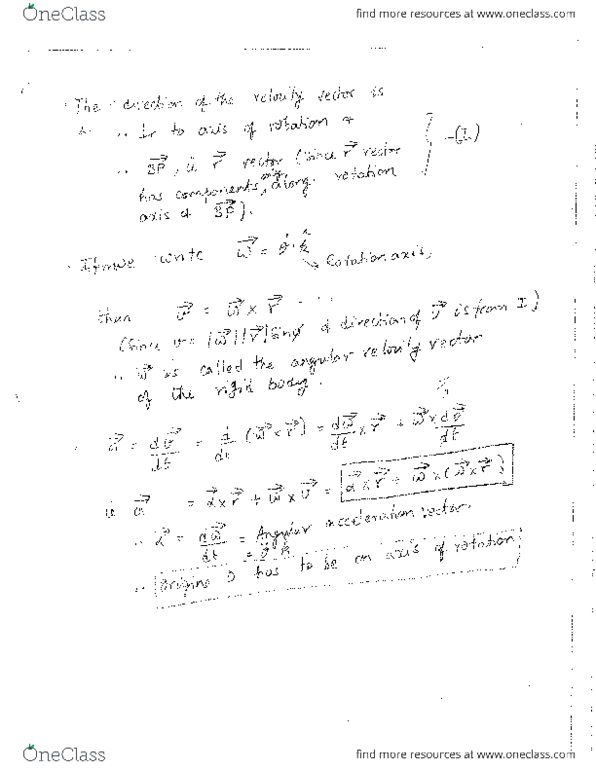 OneClass
find more resources at www.oneclass.com
The direction of the velocity vector is
⊥r to axis of rotation &
BP, r vector (since r vector
has components along rotation
axis & BP).
(I)
If we write ω⃗ = θ̇ k̂
Rotation axis,
then v⃗ = ω⃗ × r⃗
(Since v = |ω⃗||r⃗| sinφ & direction of v⃗ is from I)
ω⃗ is called the angular velocity vector
of the rigid body.
a⃗ = dv⃗/dt = d/dt (ω⃗×r⃗) = dω⃗/dt × r⃗ + ω⃗ × dr⃗/dt
a⃗ = α⃗×r⃗ + ω⃗×v⃗ = α⃗×r⃗ + ω⃗×(ω⃗×r⃗)
α⃗ = dω⃗/dt = Angular acceleration vector.
Origin O has to be on axis of rotation
OneClass
find more resources at www.oneclass.com